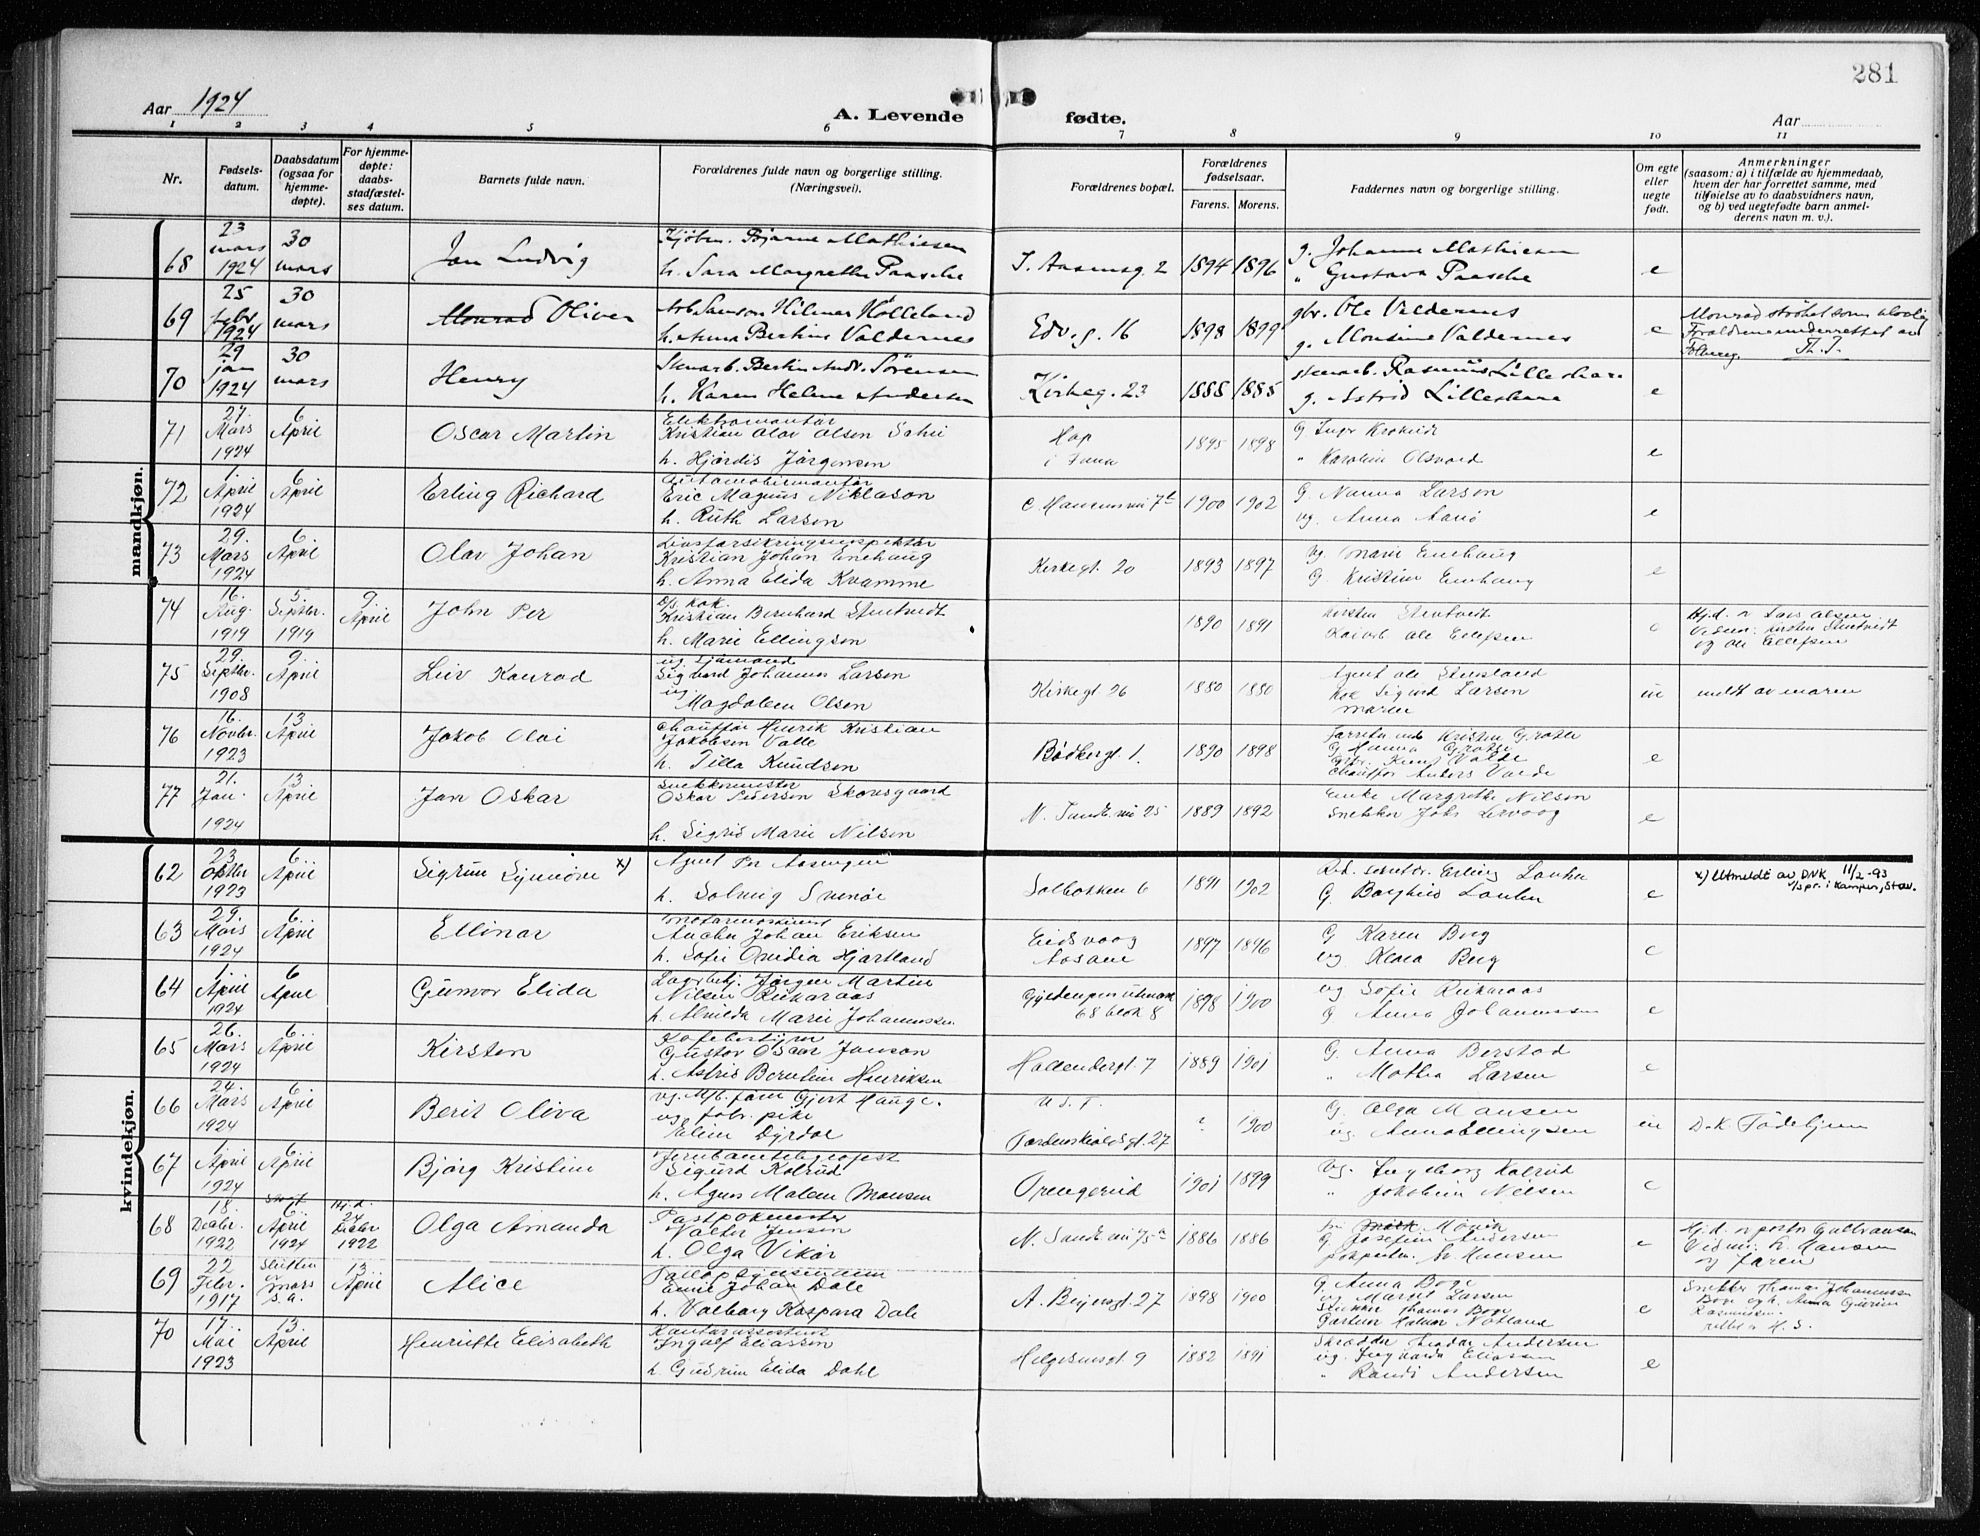 281
Aar 1924
A. Levende fødte.
Aar
1 2 3 4 5 6 7 8 9 10 11
Nr.
Fødsels-
datum.
Daabsdatum
(ogsaa for
hjemme-
døpte).
For hjemme-
døpte:
daabs-
stadfæstel-
ses datum.
Barnets fulde navn.
Forældrenes fulde navn og borgerlige stilling.
(Næringsvei).
Forældrenes bopæl.
Forældrenes
fødselsaar.
Farens. Morens.
Faddernes navn og borgerlige stilling.
Om egte
eller
uegte
født.
Anmerkninger
(saasom: a) i tilfælde av hjemmedaab,
hvem der har forrettet samme, med
tilføielse av to daabsvidners navn,
og b) ved uegtefødte barn anmel-
derens navn m. v.).
mandkjøn.
68 23 mars 1924 30 mars Jan Ludvig
Kjøbm. Bjarne Mathiesen
h. Sara Margrethe Paasche
I. Aasensg. 2 1894 1896
g. Johanne Mathiesen
" Gustava Paasche
e
69 25 febr 1924 30 mars Monrad Oliver
Arb Samson Hilmar Hølleland
h. Anna Bertine Valdernes
Edv. g. 16 1898 1899
gbr. Ole Valdernes
g. Monsine Valdernes
e
Monrad strøket som ulovlig
Th. J.
70 29 jan 1924 30 mars Henry
Stenarb. Bertin Andr. Sørensen
h. Karen Helene Andersen
Kirkeg. 23 1888 1885
stenarb. Rasmus Lilleskare
g. Astrid Lilleskare
e
71 27. Mars 1924 6 April Oscar Martin
Elektromontør
Kristian Olav Olsen
h. Hjørdis Jørgensen
Hop
i Fana
1895 1898
G
" Karoline Olsvold
e
72 1. April 1924 6 April Erling Richard
Automobilmontør
Eric Magnus Niklason
h. Ruth Larsen
1900 1902
G. Nanna Larson
ug. Anna
e
73 29. Mars 1924 6. April Olav Johan
Livsforsikringsinspektør
Kristian Johan Enehaug
h. Anna Elida Kvamme
Kirkegt 20 1893 1897
Ug. Marie Enehaug
G Kristine Enehaug
e
74 16. Aug. 1919 5. Septbr. 1919 9 April John Per
D/s kok.
Kristian Bernhard Stentvedt
h. Marie Ellingsen
1890 1891
Kirsten Stentvedt
Ole Ellefsen
e
Hj.d. v Lars Olsen
Vidner: Kirsten Stentvedt
og Ole Ellefsen
75 29. Septbr. 1908 9. April Leiv Konrad
ug sjømand
Sigvard Johannes Larsen
ug
Magdalene Olsen
Kirkegt 26 1880 1880
Agent Ole Stensland
kok Sigurd Larsen
moren
u
meldt av moren
76 16. Novbr. 1923 13 April Jakob Olai
Chauffør Henrik Kristian
Jakobsen Valle
h. Tilla Knudsen
Bødkergt 1. 1890 1898
Kristen Grotle
G Hanna Grotle
Gbr. Knut Valde
Chauffør Anders Valde
e
77 21. Jan. 1924 13 April Jan Oskar
Snekkermester
Oskar Pedersen Skousgaard
h. Sigrid Marie Nilsen
N. 25 1889 1892
Enke Margrethe Nilsen
Snekker Johs Lervoog
e
kvindekjøn.
62 23 Oktbr 1923 6. April Sigrun Synnøve x)
Agent Per Aasengen
h. Solveig Svenøe
Solbakken 6 1891 1902
Red. sekretær Erling Lauhn
G. Borghild Lauhn
e
x) Utmeldt av DNK 11/2-93
v/spr. i Kampen, Stav.
63 29. Mars 1924 6. April Ellinor
Johan Eriksen
h. Sofie Ovidia Hjortland
Eidsvaag
Aasane
1897 1896
G Karen Berg
ug Klara Berg
e
64 1 April 1924 6 April Gunvor Elida
Lagerbetj. Jørgen Martin
Nilsen
h. Almilda Marie Johannessen
68 blok 8
1898 1900
ug Sofie
G Anna Johannessen
e
65 26. Mars 1924 6. April Kirsten
Kafebestyrer
Gustav Oscar Jonson
h. Astrid Berntine Henriksen
Hollendergt. 7 1889 1901
G. Anna Berstad
" Mathea Larsen
e
66 24. Mars 1924 6. April Berit Oliva
ug. Gjert Hauge.
ug. fabr. pike
Eline Dyrdal
U. S. T.
Tordenskioldsgt. 27
? 1900
G. Olga Monsen
ug. Anna Ellingsen
u
D. K Fødehjem
67 1 April 1924 6 April Bjørg Kristine
Jernbanetelegrafist
Sigurd Kolrud
h. Agnes Malene Monsen
1901 1899
Ug. Ingeborg Kolrud
" Jakobine Nilsen
e
68 18. Decbr. 1922 6. April 1924 Hj.d. 24 Decbr 1922 Olga Amanda
Valter Jensen
h. Olga Vikør
N. 75a 1886 1886
G Josefine Andersen
Hansen
e
Hj.d. v pastor Gulbransen
Vidner: h. Hansen
og faren
69 22 Febr. 1917 Slutten av mars s.a. 13. April Alice
Johan Dale
h. Valborg Kaspara Dale
A. Beyersgt. 27 1898 1900
G Anna Boge
ug Martel Larsen
Snekker Thomas Boge
Gartner Halvor Natland
e
Snekker Thomas Johannessen
Boge og h. Anna Gurine
Rasmussen.
70 17. Mai 1923 13. April Henriette Elisabeth
Kontorassistent
Ingolf Eliassen
h. Gudrun Elida Dahl
Helgesensgt. 9 1882 1891
Skrædder Andersen
ug. Ingvarda Eliassen
" Randi Andersen
e